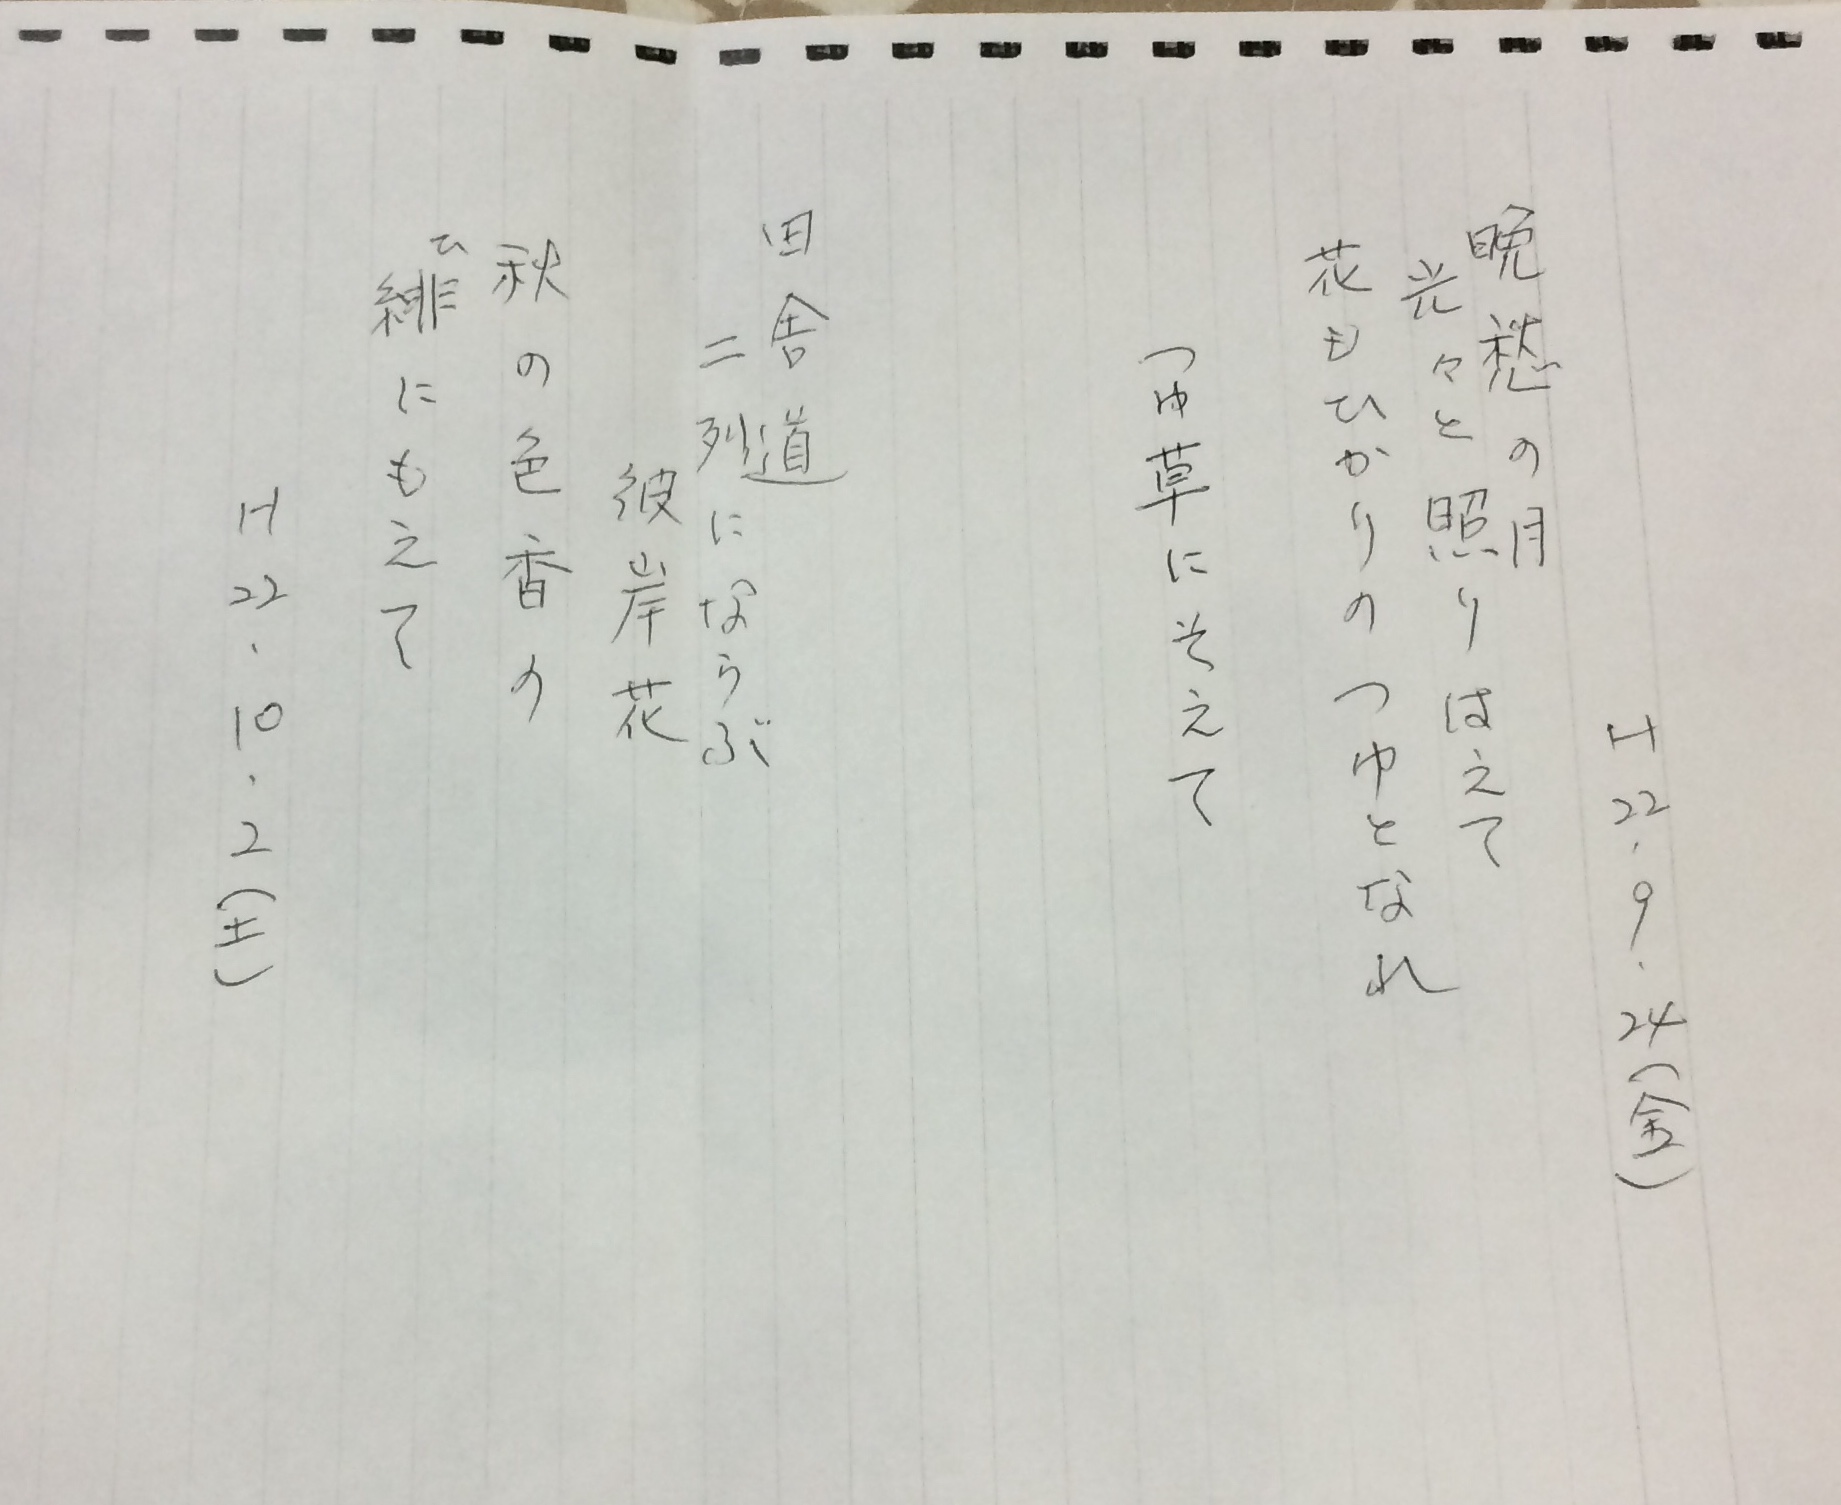 H22.9.24(金)
晩愁の月
光々と照りはえて
花もひかりのつゆとなれ
つゆ草にそえて
田舎道
二列にならぶ
彼岸花
秋の色香の
緋にもえて
ひ
H22.10.2(土)